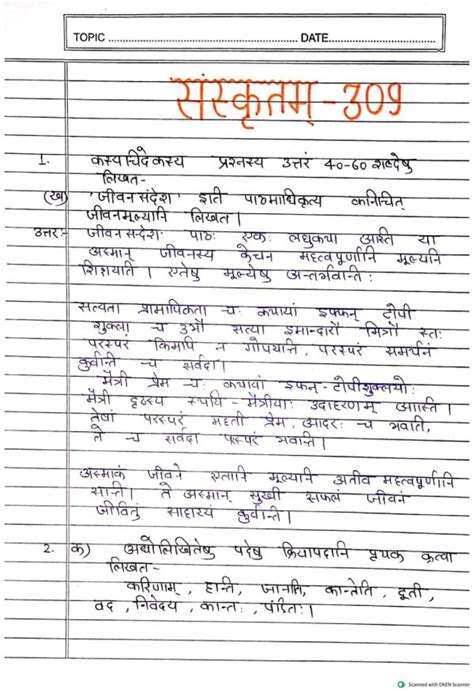 TOPIC ........................................ DATE........................................
संस्कृतम्-309
1. कस्यचिदेकस्य प्रश्नस्य उत्तरं 40-60 शब्देषु
लिखत-
(ख) 'जीवनसंदेश' इति पाठमाधिकृत्य कानिचित्
जीवनमूल्यानि लिखत।
उत्तर:- जीवनसंदेशः पाठः एकः लघुकथा अस्ति या
अस्मान् जीवनस्य केचन महत्वपूर्णानि मूल्यानि
शिक्षयति। एतेषु मूल्येषु अन्तर्भवन्ति:
सत्यता प्रामाणिकता चः कथायां इफ्फन् टोपी
शुक्ला च उभौ सत्या इमान्दारौ मित्रौ स्तः
परस्परं किमपि न गोपयन्ति, परस्परं समर्थनं
कुर्वन्ति च सर्वदा।
मैत्री प्रेम चः कथायां इफन्-टोपीशुक्लयोः
मैत्री दृढस्य मैत्रीयाः उदाहरणम् अस्ति।
तेषां परस्परं महती प्रेम, आदरः च भवति,
ते च सर्वदा भवन्ति।
अस्माकं जीवने एतानि मूल्यानि अतीव महत्वपूर्णानि
सान्ति। ते अस्मान् सुखी सफलं जीवनं
जीवितुं साहाय्यं कुर्वन्ति।
2. क) अधोलिखितेषु पदेषु क्रियापदानि पृथक कृत्वा
लिखत-
करिणाम्, हान्ति, जानाति, कान्तेति, दूती,
वद, निवेदय, कान्तः, पंडितः।
Scanned with OKEN Scanner